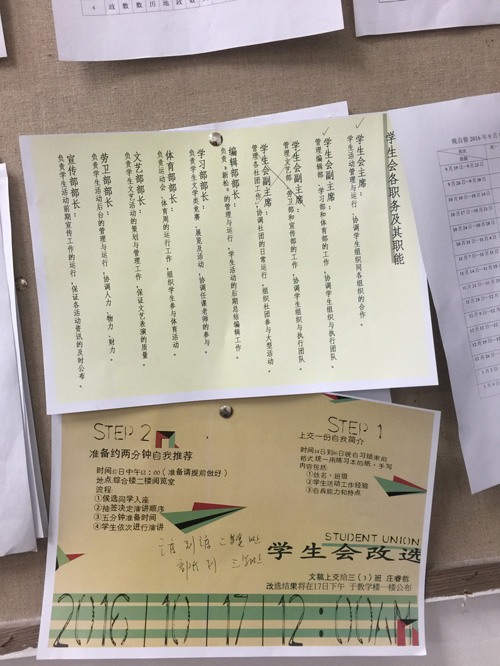 4 政 数 数 历 地 政
学生会各职务及其职能
学生会主席：
学生活动管理与运行，协调学生组织间各组织的合作。
学生会副主席：
管理编辑部、学习部和体育部的工作，协调学生组织与执行团队。
学生会副主席：
管理文艺部、劳卫部和宣传部的工作，协调学生组织与执行团队。
学生会副主席：
管理各社团工作，协调社团的日常运行，组织社团参与大型活动。
编辑部部长：
负责《新松》的管理与运行，学生活动的后期总结编辑工作。
学习部部长：
负责学生文学类竞赛、展览及活动，协调任课老师的参与。
体育部部长：
负责运动会、体育周的运行工作，组织学生参与体育活动。
文艺部部长：
负责学生文艺活动的策划与管理工作，保证文艺表演的质量。
劳卫部部长：
负责学生活动后台的管理与运行，协调人力、物力、财力。
宣传部部长：
负责学生活动前期宣传工作的运行，保证各活动资讯的及时公布。
晚自修 2016 年 9 月
STEP 1
上交一份自我简介
格式统一用练习本的纸，手写
内容包括
①姓名、班级
②学生活动工作经验
③自身能力和特点
STEP 2
准备约两分钟自我推荐
地点综合楼二楼阅览室
流程
①候选同学入座
②抽签决定演讲顺序
③五分钟准备时间
④学生依次进行演讲
STUDENT UNION
学生会改选
文稿上交给三（3）班 庄睿哲
改选结果将在17日下午 于教学楼一楼公布
2016 10 17 12:00AM